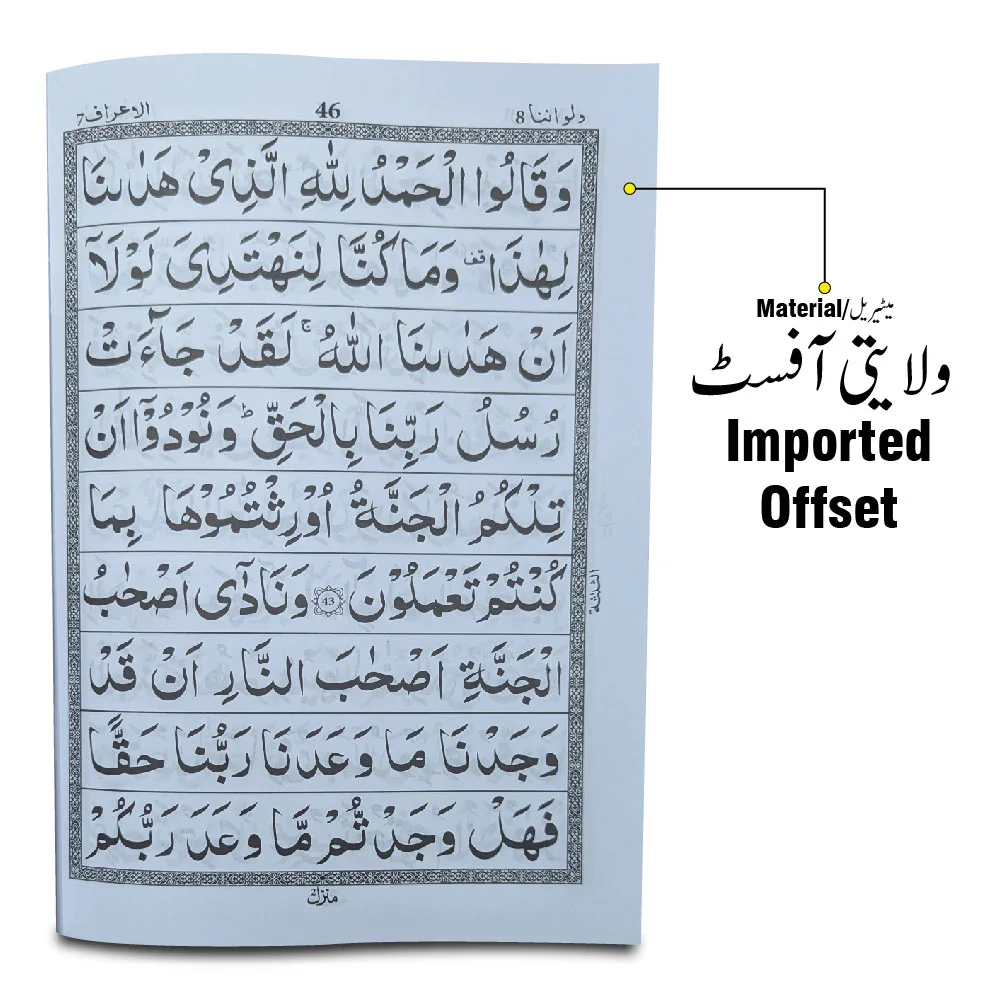 ولو اننا 8
46
الاعراف 7
وَ قَالُوا الْحَمْدُ لِلّٰهِ الَّذِیْ هَدٰىنَا
لِهٰذَا قف وَمَا كُنَّا لِنَهْتَدِیَ لَوْلَاۤ
اَنْ هَدٰىنَا اللّٰهُ ۚ لَقَدْ جَآءَتْ
رُسُلُ رَبِّنَا بِالْحَقِّ ؕ وَ نُوْدُوْۤا اَنْ
تِلْكُمُ الْجَنَّةُ اُوْرِثْتُمُوْهَا بِمَا
كُنْتُمْ تَعْمَلُوْنَ 43 وَ نَادٰۤی اَصْحٰبُ
الْجَنَّةِ اَصْحٰبَ النَّارِ اَنْ قَدْ
وَجَدْنَا مَا وَعَدَنَا رَبُّنَا حَقًّا
فَهَلْ وَجَدْتُّمْ مَّا وَعَدَ رَبُّكُمْ
الثلٰثة
Material/میٹیریل
ولایتی آفسٹ
Imported
Offset